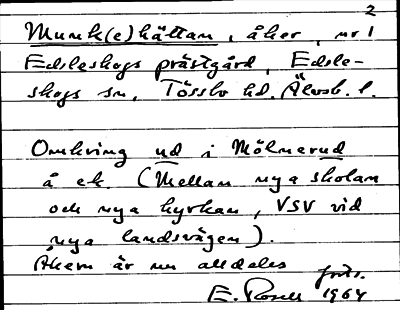 2
Munk(e)hättan, åker, nr 1
Edsleskogs prästgård, Edsle-
skogs sn, Tössbo hd. Älvsb. l.
Omkring ud i Mölnerud
å ek. (Mellan nya skolan
och nya kyrkan, VSV vid
nya landsvägen).
Åkern är nu alldeles
forts.
E. Rosell 1964